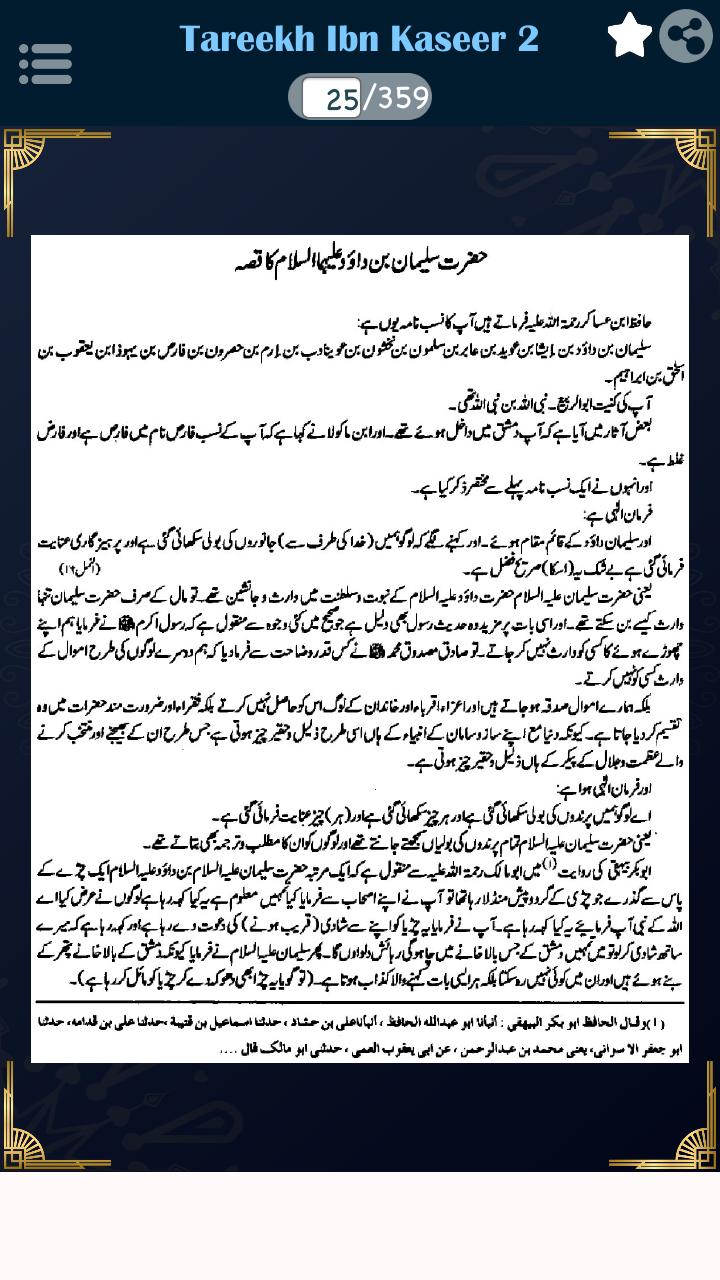 Tareekh Ibn Kaseer 2
25/359
حضرت سلیمان بن داؤد علیہما السلام کا قصہ
حافظ ابن عساکر رحمۃ اللہ علیہ فرماتے ہیں آپ کا نسب نامہ یوں ہے:
سلیمان بن داؤد بن ایشا بن عوید بن عابر بن سلمون بن نخشون بن عوینادب بن ارم بن حصرون بن فارص بن یہوذا بن یعقوب بن
اسحٰق بن ابراہیم۔
آپ کی کنیت ابوالربیع۔ نبی اللہ بن نبی اللہ تھی۔
بعض آثار میں آیا ہے کہ آپ دمشق میں داخل ہوئے تھے۔ اور ابن ماکولا نے کہا ہے کہ آپ کے نسب فارص نام میں فارص ہے اور فارض
غلط ہے۔
اور انہوں نے ایک نسب نامہ پہلے سے مختصر ذکر کیا ہے۔
فرمان الٰہی ہے:
اور سلیمان داؤد کے قائم مقام ہوئے۔ اور کہنے لگے کہ لوگو ہمیں (خدا کی طرف سے) جانوروں کی بولی سکھائی گئی ہے اور پرہیزگاری عنایت
فرمائی گئی ہے بے شک یہ (اسکا) صریح فضل ہے۔ (النمل ۱۶)
یعنی حضرت سلیمان علیہ السلام حضرت داؤد علیہ السلام کے نبوت و سلطنت میں وارث و جانشین تھے۔ تو مال کے صرف حضرت سلیمان تنہا
وارث کیسے بن سکتے تھے۔ اور اسی بات پر مزید وہ حدیث رسول بھی دلیل ہے جو صحیح میں کئی وجوہ سے منقول ہے کہ رسول اکرم ﷺ نے فرمایا ہم اپنے
چھوڑے ہوئے کا کسی کو وارث نہیں کر جاتے۔ تو صادق مصدوق محمد ﷺ نے کس قدر وضاحت سے فرمادیا کہ ہم دوسرے لوگوں کی طرح اموال کے
وارث کسی کو نہیں کرتے۔
بلکہ ہمارے اموال صدقہ ہو جاتے ہیں اور اعزاء اقرباء اور خاندان کے لوگ اس کو حاصل نہیں کرتے بلکہ فقراء اور ضرورت مند حضرات میں وہ
تقسیم کر دیا جاتا ہے۔ کیونکہ دنیا مع اپنے ساز و سامان کے انبیاء کے ہاں اسی طرح ذلیل و حقیر چیز ہوتی ہے جس طرح ان کے بھیجنے اور منتخب کرنے
والے عظمت و جلال کے پیکر کے ہاں ذلیل و حقیر چیز ہوتی ہے۔
اور فرمان الٰہی ہوا ہے:
اے لوگو ہمیں پرندوں کی بولی سکھائی گئی ہے اور ہر چیز سکھائی گئی ہے اور (ہر) چیز عنایت فرمائی گئی ہے۔
یعنی حضرت سلیمان علیہ السلام تمام پرندوں کی بولیاں سمجھتے جانتے تھے اور لوگوں کو ان کا مطلب و ترجمہ بھی بتاتے تھے۔
ابو بکر بیہقی کی روایت (۱) میں ابو مالک رحمۃ اللہ علیہ سے منقول ہے کہ ایک مرتبہ حضرت سلیمان علیہ السلام بن داؤد علیہ السلام ایک چڑے کے
پاس سے گذرے جو چڑی کے گرد و پیش منڈلا رہا تھا تو آپ نے اپنے اصحاب سے فرمایا کیا تمہیں معلوم ہے یہ کیا کہہ رہا ہے لوگوں نے عرض کیا اے
اللہ کے نبی آپ فرمائیے یہ کیا کہہ رہا ہے۔ آپ نے فرمایا یہ چڑیا کو اپنے سے شادی (قریب ہونے) کی دعوت دے رہا ہے اور کہہ رہا ہے کہ میرے
ساتھ شادی کر لو تو میں تمہیں دمشق کے جس بالا خانے میں چاہو گی رہائش دلواؤں گا۔ پھر سلیمان علیہ السلام نے فرمایا کیونکہ دمشق کے بالا خانے پتھر کے
بنے ہوئے ہیں اور ان میں کوئی نہیں رہ سکتا بلکہ ہر ایسی بات کہنے والا کذاب ہوتا ہے۔ (تو گویا یہ چڑا بھی دھوکہ دے کر چڑیا کو مائل کر رہا ہے)۔
(۱) وقال الحافظ ابو بکر البیهقی: أنبأنا ابو عبدالله الحافظ، أنبأنا علی بن حشاد، حدثنا اسماعیل بن قتیبة، حدثنا علی بن قدامه، حدثنا
ابو جعفر الاسوانی، یعنی محمد بن عبدالرحمن، عن ابی یعقوب العمی، حدثنی ابو مالک قال ....